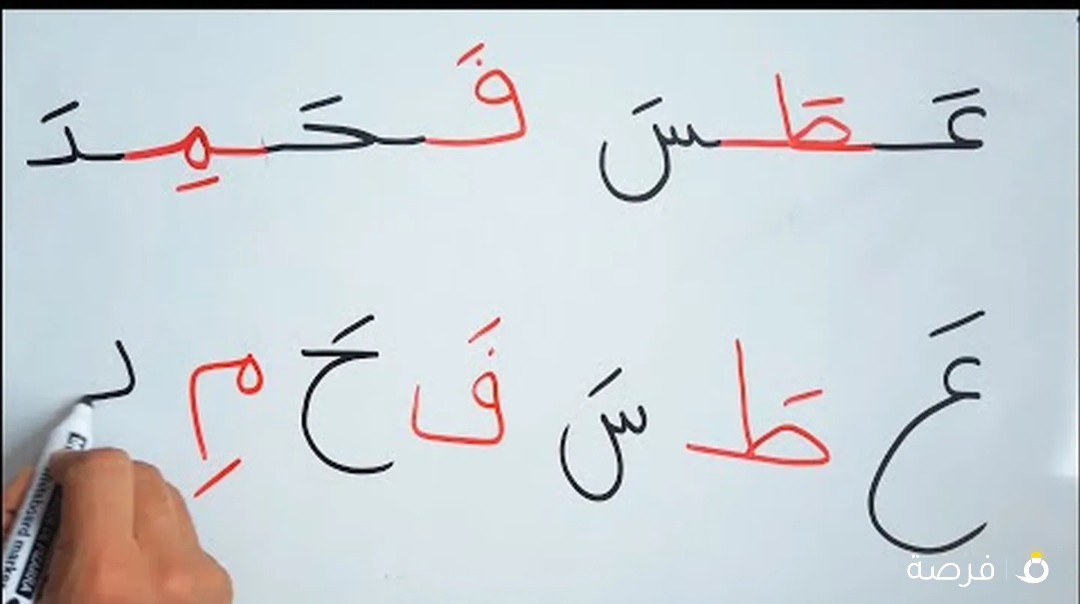 عَطَسَ فَحَمِدَ
عَ طَ سَ فَ حَ مِ د
فرصة